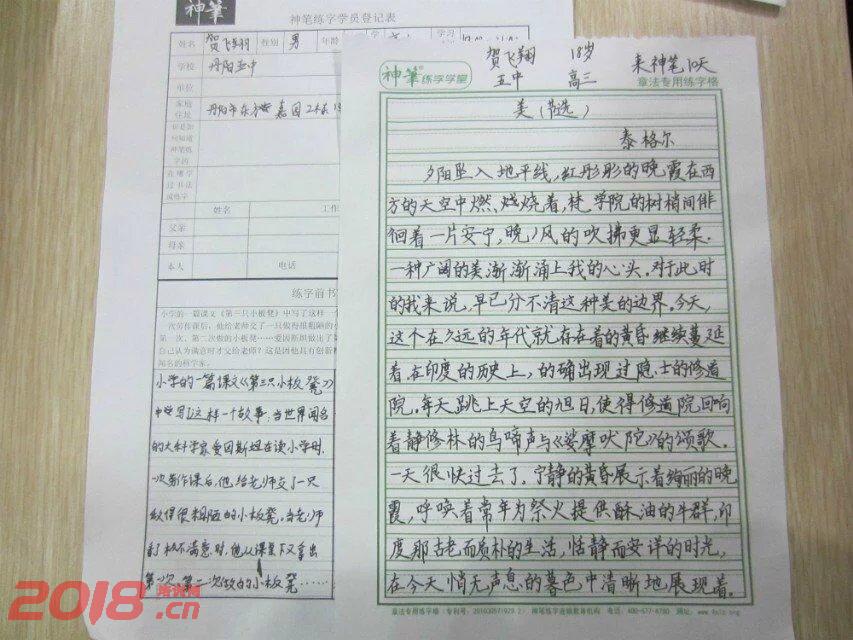 神筆
神笔练字学员登记表
姓名 贺飞翔 性别 男 年龄
学校 丹阳五中
单位
家庭住址
姓名
父亲
母亲
本人 电话
练字前书
小学的一篇课文《第三只小板凳》中写了这样一个
小学的一篇课文《第三只小板凳》
中写了这样一个故事:当世界闻名
的大科学家爱因斯坦在读小学时,
一次劳作课后,他给老师交了一只
做得很粗陋的小板凳。当老师
们极不满意时,他从课桌下又拿出
第一次、第二次做的小板凳……
贺飞翔 18岁
五中 高三 来神笔10天
神筆练字学堂 章法专用练字格
美(节选)
泰格尔
夕阳坠入地平线,红彤彤的晚霞在西
方的天空中燃烧着,梵学院的树梢间徘
徊着一片安宁,晚风的吹拂更显轻柔.
一种广阔的美渐渐涌上我的心头.对于此时
的我来说,早已分不清这种美的边界.今天,
这个在久远的年代就存在着的黄昏继续蔓延
着.在印度的历史上,的确出现过隐士的修道
院.每天跳上天空的旭日,使得修道院回响
着静修林的鸟啼声与《娑摩吠陀》的颂歌.
一天很快过去了,宁静的黄昏展示着绚丽的晚
霞,呼唤着常年为祭火提供酥油的牛群,印
度那古老而质朴的生活,恬静而安详的时光,
在今天悄无声息的暮色中清晰地展现着.
章法专用练字格 神笔练字连锁教体机构 电话:400-677-6780
2018.cn